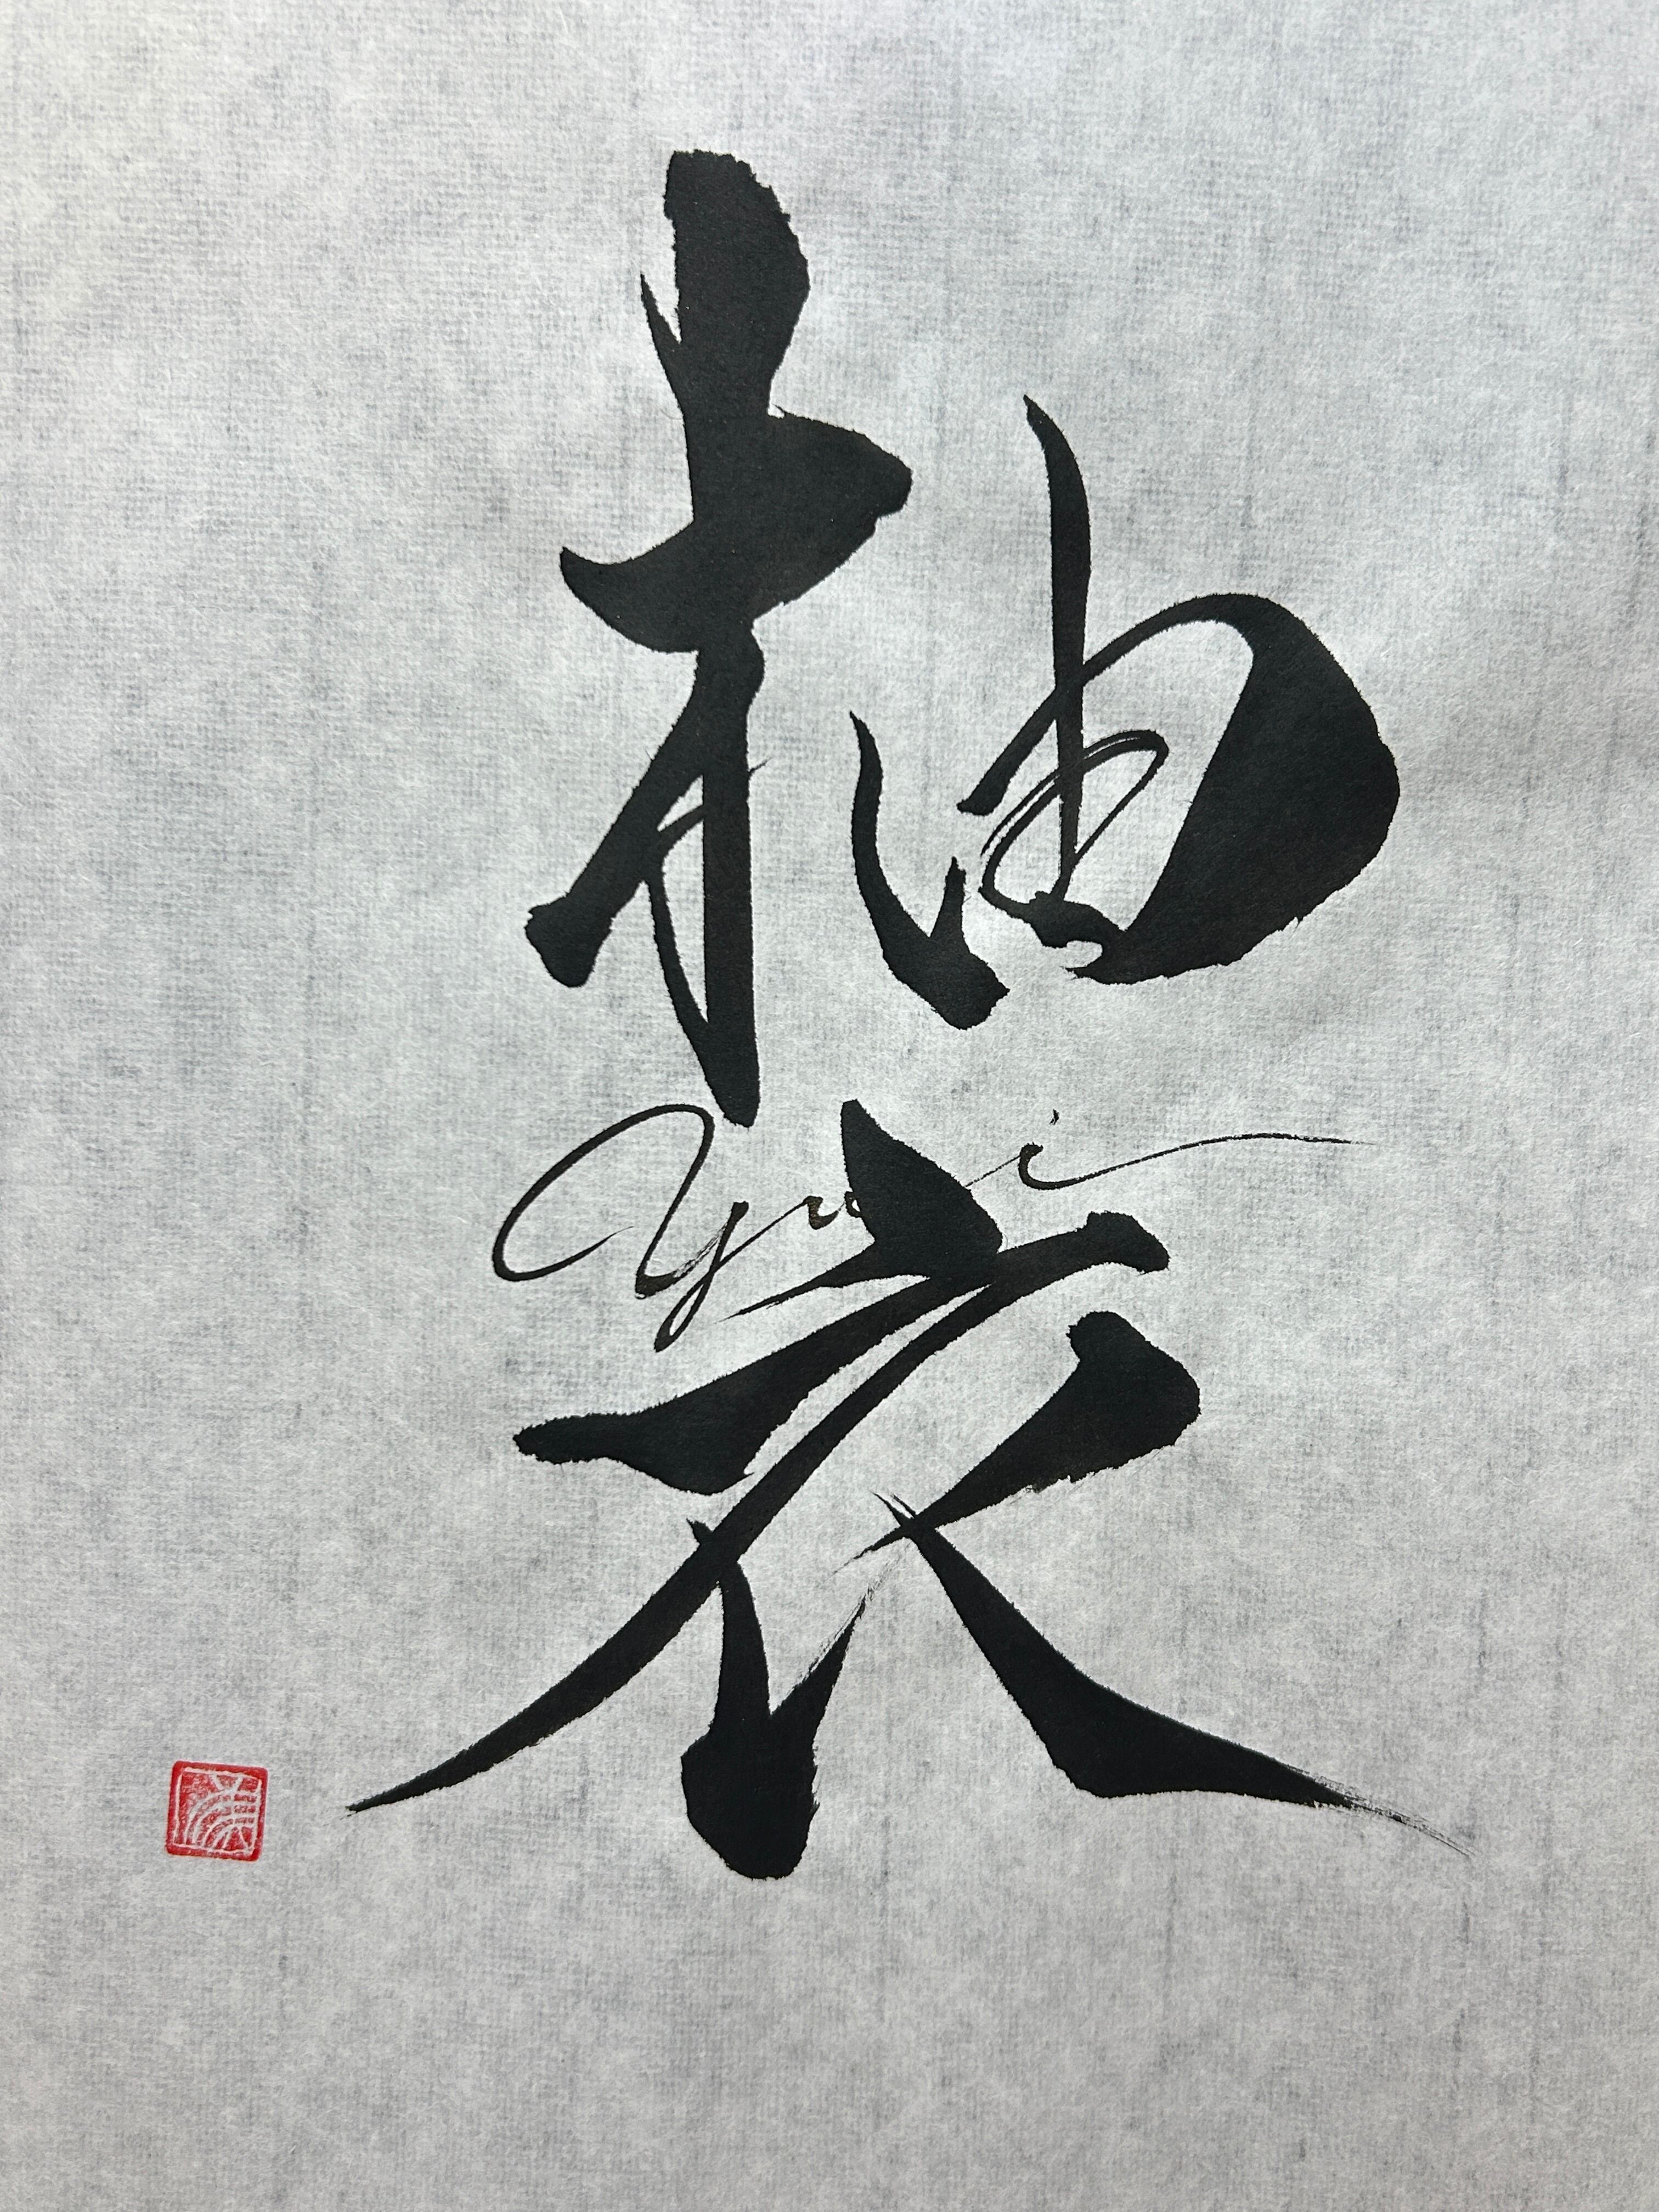 柚衣
yui